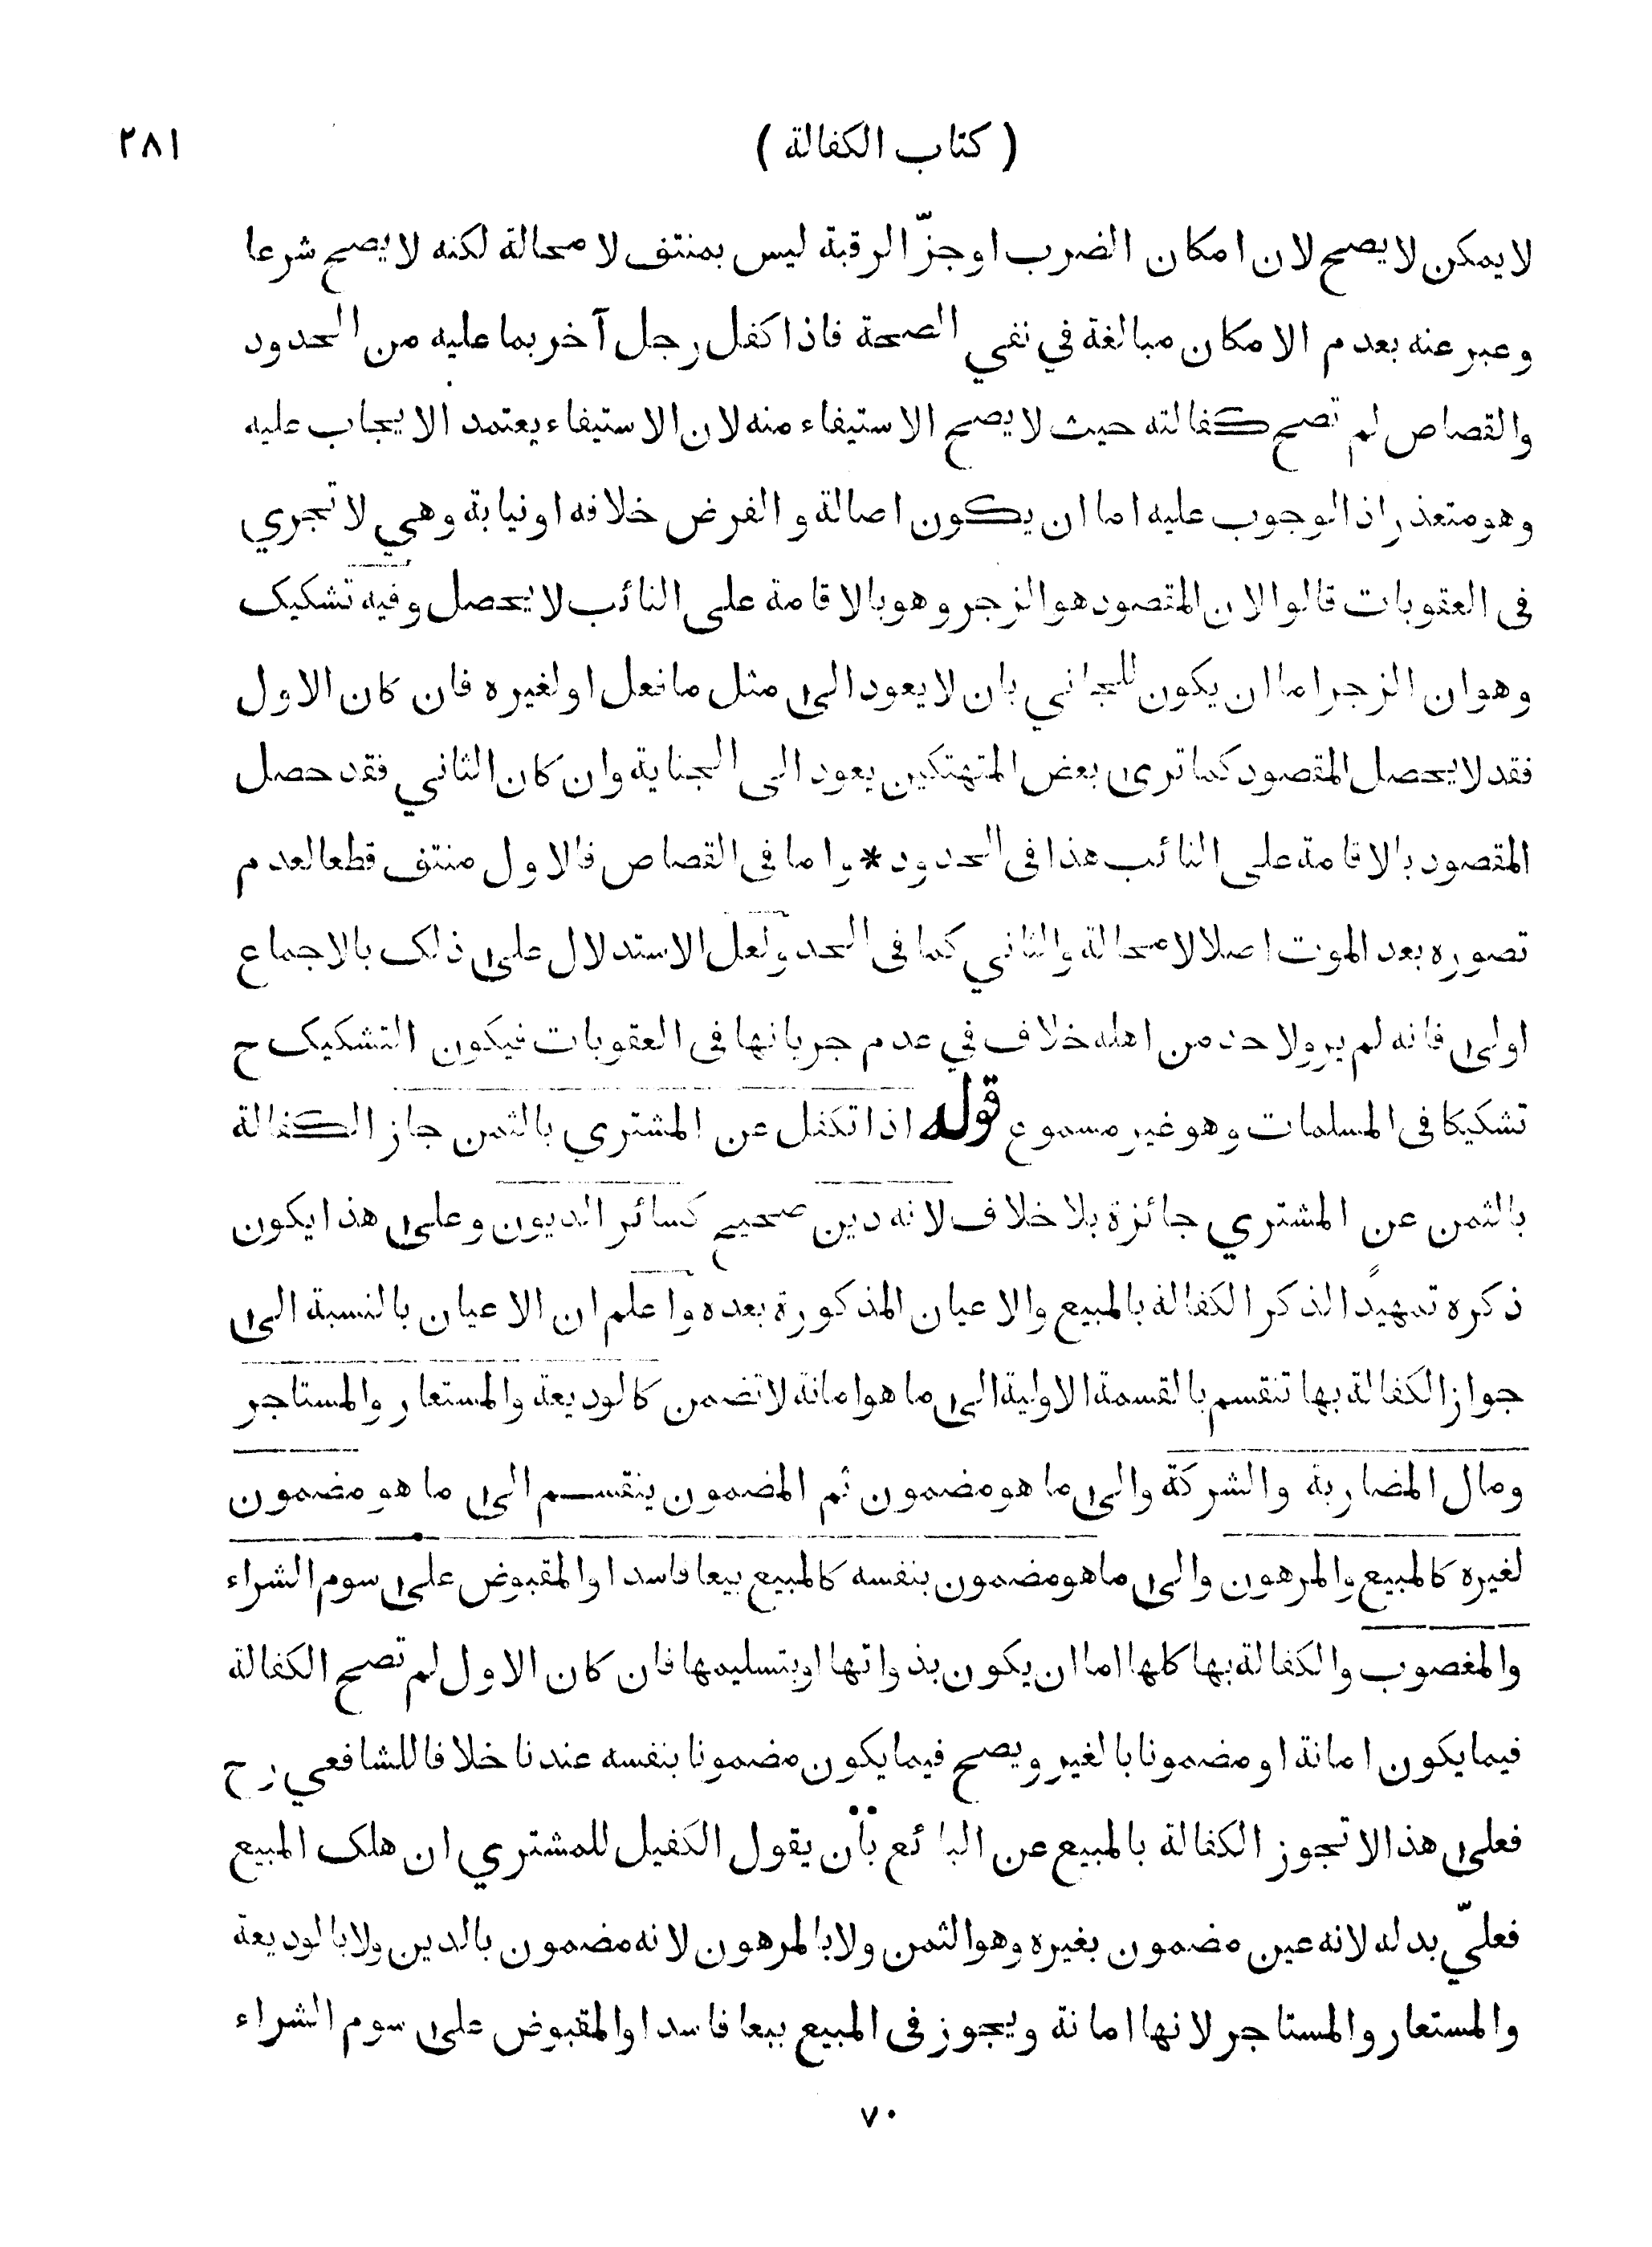 ( كتاب الكفالة ) ٢٨١
لا يمكن لا يصح لان امكان الضرب او جزّ الرقبة ليس بمنتف لا محالة لكنه لا يصح شرعا
وعبر عنه بعدم الامكان مبالغة في نفي الصحة فاذا كفل رجل آخر بما عليه من الحدود
والقصاص لم تصح كفالته حيث لا يصح الاستيفاء منه لان الاستيفاء يعتمد الايجاب عليه
وهو متعذر اذ الوجوب عليه اما ان يكون اصالة و الفرض خلافه او نيابة وهي لا تجري
فى العقوبات قالوا لان المقصود هو الزجر وهو بالاقامة على النائب لا يحصل وفيه تشكيك
وهو ان الزجر اما ان يكون للجاني بان لا يعود الى مثل ما فعل او لغيره فان كان الاول
فقد لا يحصل المقصود كما ترى بعض المتهتكين يعود الى الجناية وان كان الثاني فقد حصل
المقصود بالاقامة على النائب هذا فى الحدود * واما فى القصاص فالاول منتف قطعا لعدم
تصوره بعد الموت اصلا لا محالة والثاني كما فى الحد ولعل الاستدلال على ذلك بالاجماع
اولى فانه لم يرو لاحد من اهله خلاف في عدم جريانها فى العقوبات فيكون التشكيك ح
تشكيكا فى المسلمات وهو غير مسموع قوله اذا تكفل عن المشتري بالثمن جاز الكفالة
بالثمن عن المشتري جائزة بلا خلاف لانه دين صحيح كسائر الديون وعلى هذا يكون
ذكره تمهيدًا لذكر الكفالة بالمبيع والاعيان المذكورة بعده واعلم ان الاعيان بالنسبة الى
جواز الكفالة بها تنقسم بالقسمة الاولية الى ما هو امانة لا تضمن كالوديعة والمستعار والمستاجر
ومال المضاربة والشركة والى ما هو مضمون ثم المضمون ينقسم الى ما هو مضمون
لغيره كالمبيع والمرهون والى ما هو مضمون بنفسه كالمبيع بيعا فاسدا والمقبوض على سوم الشراء
والمغصوب والكفالة بها كلها اما ان يكون بذواتها او بتسليمها فان كان الاول لم تصح الكفالة
فيما يكون امانة او مضمونا بالغير ويصح فيما يكون مضمونا بنفسه عندنا خلافا للشافعي رح
فعلى هذا لا تجوز الكفالة بالمبيع عن البائع بأن يقول الكفيل للمشتري ان هلك المبيع
فعليّ بدله لانه عين مضمون بغيره وهو الثمن ولا بالمرهون لانه مضمون بالدين ولا بالوديعة
والمستعار والمستاجر لانها امانة ويجوز فى المبيع بيعا فاسدا والمقبوض على سوم الشراء
٧٠